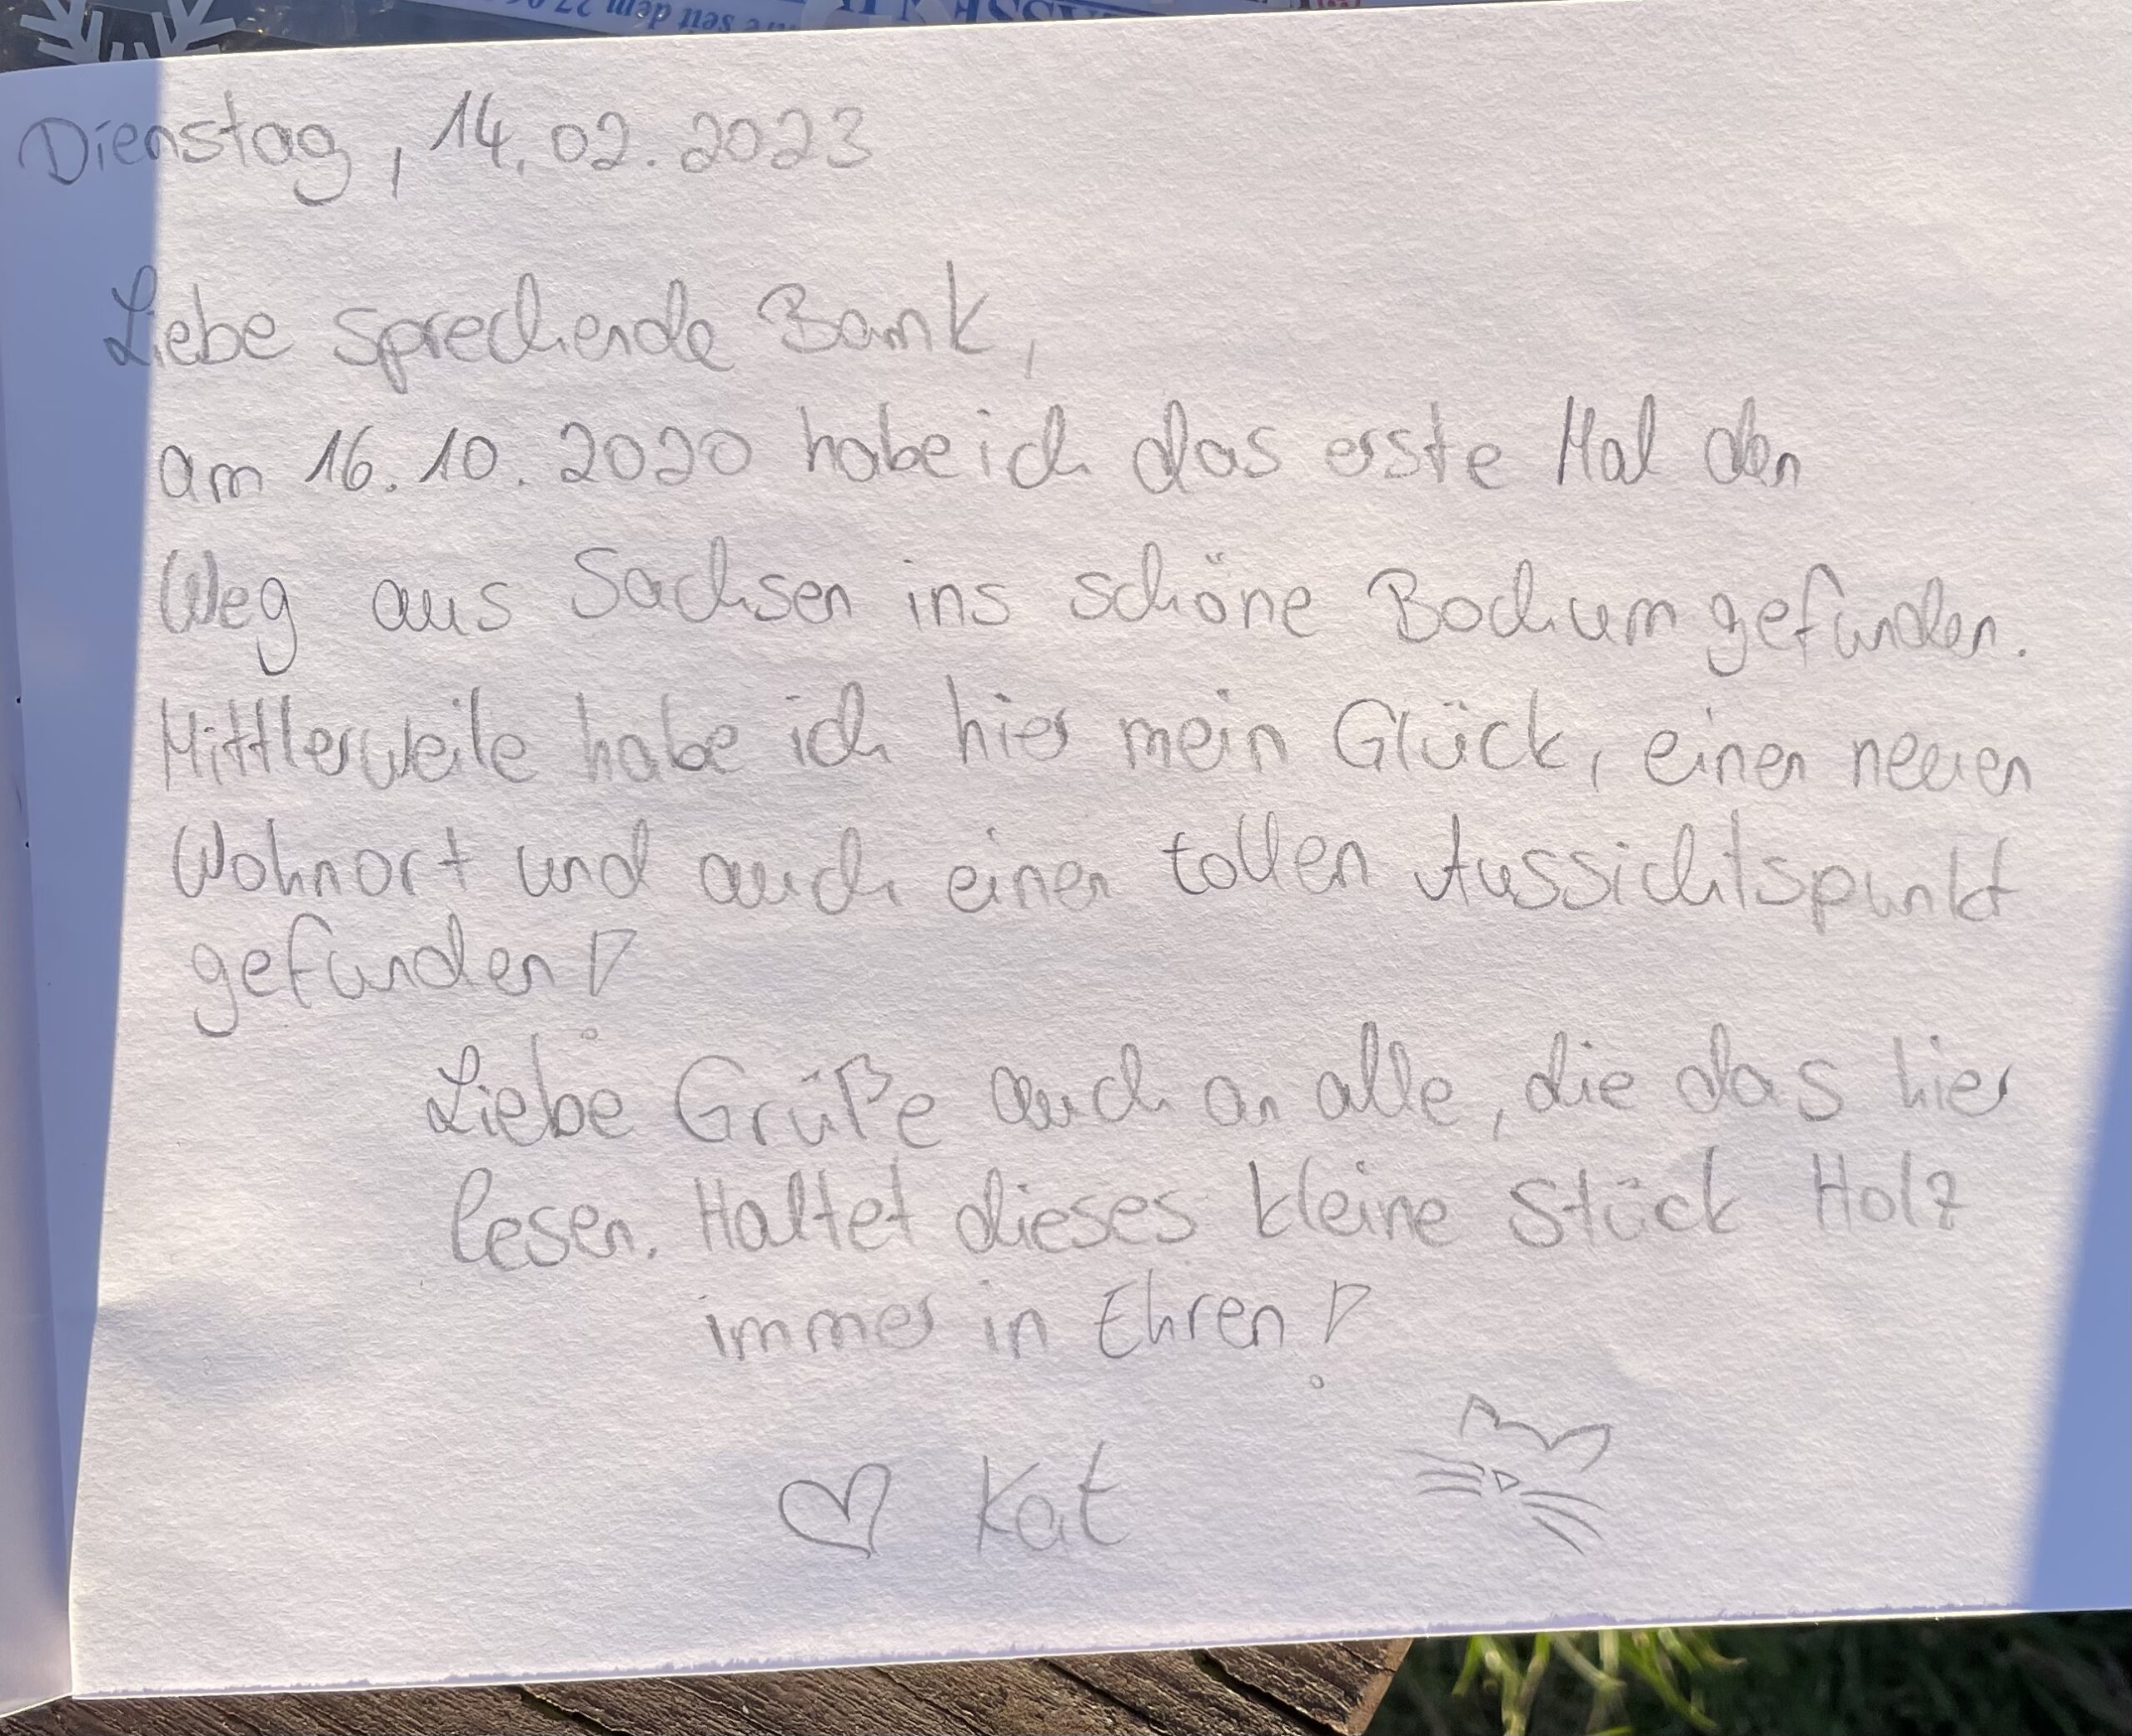 Dienstag, 14.02.2023
Liebe sprechende Bank,
am 16.10.2020 habe ich das erste Mal den
Weg aus Sachsen ins schöne Bochum gefunden.
Mittlerweile habe ich hier mein Glück, einen neuen
Wohnort und auch einen tollen Aussichtspunkt
gefunden!
Liebe Grüße auch an alle, die das hier
lesen. Haltet dieses kleine Stück Holz
immer in Ehren!
♡ Kat
seit dem 27.0